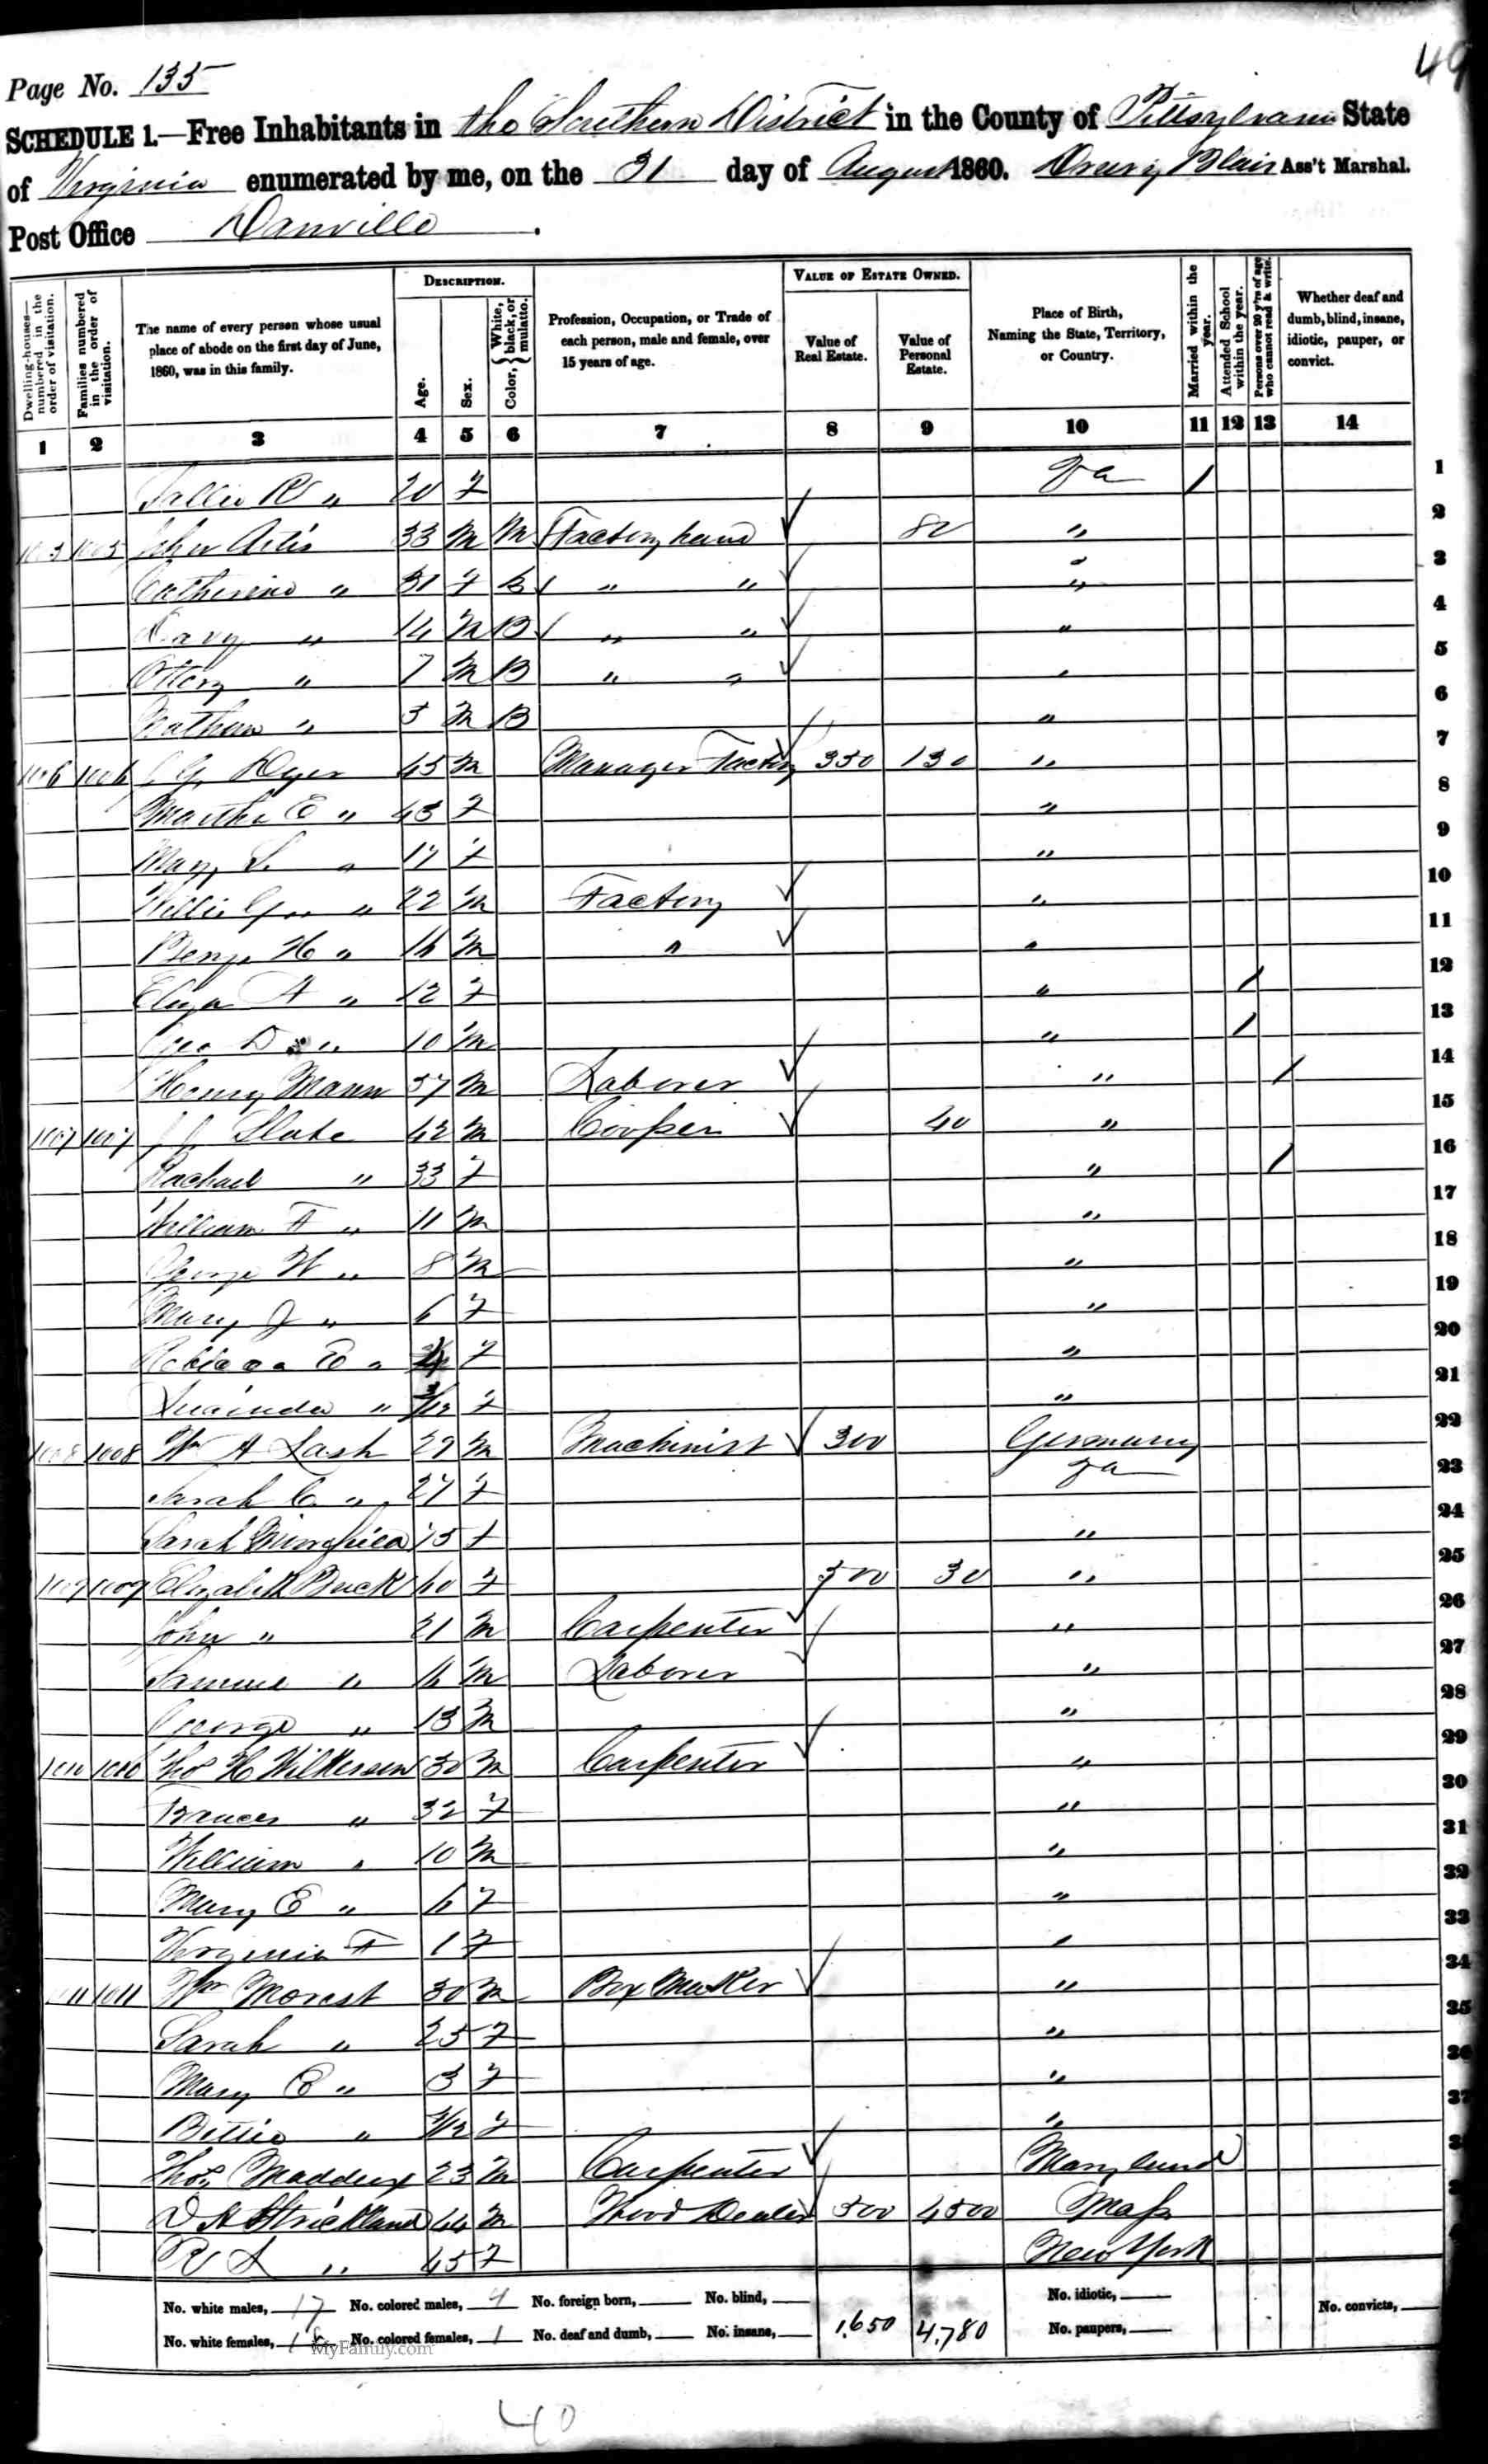 49
Page No. 135
SCHEDULE 1.—Free Inhabitants in the Southern District in the County of Pittsylvania State
of Virginia enumerated by me, on the 31 day of August 1860. Drury Blair Ass't Marshal.
Post Office Danville.
Dwelling-houses—numbered in the order of visitation. Families numbered in the order of visitation. The name of every person whose usual place of abode on the first day of June, 1860, was in this family. DESCRIPTION. Age. Sex. Color, { White, black, or mulatto. Profession, Occupation, or Trade of each person, male and female, over 15 years of age. VALUE OF ESTATE OWNED. Value of Real Estate. Value of Personal Estate. Place of Birth, Naming the State, Territory, or Country. Married within the year. Attended School within the year. Persons over 20 y'rs of age who cannot read & write. Whether deaf and dumb, blind, insane, idiotic, pauper, or convict.
1 2 3 4 5 6 7 8 9 10 11 12 13 14
Sallie R " 20 F Va / 1
1005 1005 John Artis 33 M M Factory hand 80 " 2
Catherine " 31 F B " " " 3
Davy " 14 M B " " " 4
" 7 M B " " " 5
Nathan " 5 M B " 6
1006 1006 Dyer 45 M Manager Factory 350 130 " 7
Martha E " 43 F " 8
Mary S. " 17 F " 9
Willie Geo " 22 M Factory " 10
Benj H " 16 M " " 11
Eliza A " 12 F " / 12
Geo D " 10 M " / 13
Henry Mann 57 M Laborer " / 14
1007 1007 J J Slate 42 M Cooper 40 " 15
Rachael " 33 F " / 16
William F " 11 M " 17
George W " 8 M " 18
Mary J " 6 F " 19
Rebecca E " F " 20
Luainda " 3/12 F " 21
1008 1008 Wm A Lash 29 M Machinist 300 Germany 22
Sarah C " 27 F Va 23
Sarah 15 F " 24
1009 1009 Elizabeth Buck 60 F 500 30 " 25
John " 21 M Carpenter " 26
Samuel " 16 M Laborer " 27
George " 13 M " 28
1010 1010 Thos H Wilkerson 30 M Carpenter " 29
Frances " 32 F " 30
William " 10 M " 31
Mary E " 6 F " 32
Virginia F 1 F " 33
1011 1011 Wm Morest 30 M Box Maker " 34
Sarah " 25 F " 35
Mary E " 3 F " 36
Bettie " 3/12 F " 37
Thos Maddux 23 M Carpenter Maryland 3
D A Strickland 44 M Wood Dealer 500 4500 Mass
R A " 45 F New York
No. white males, 17 No. colored males, 4 No. foreign born, No. blind, No. idiotic, No. convicts,
No. white females, 18 No. colored females, 1 No. deaf and dumb, No. insane, 1,650 4,780 No. paupers,
MyFamily.com
40